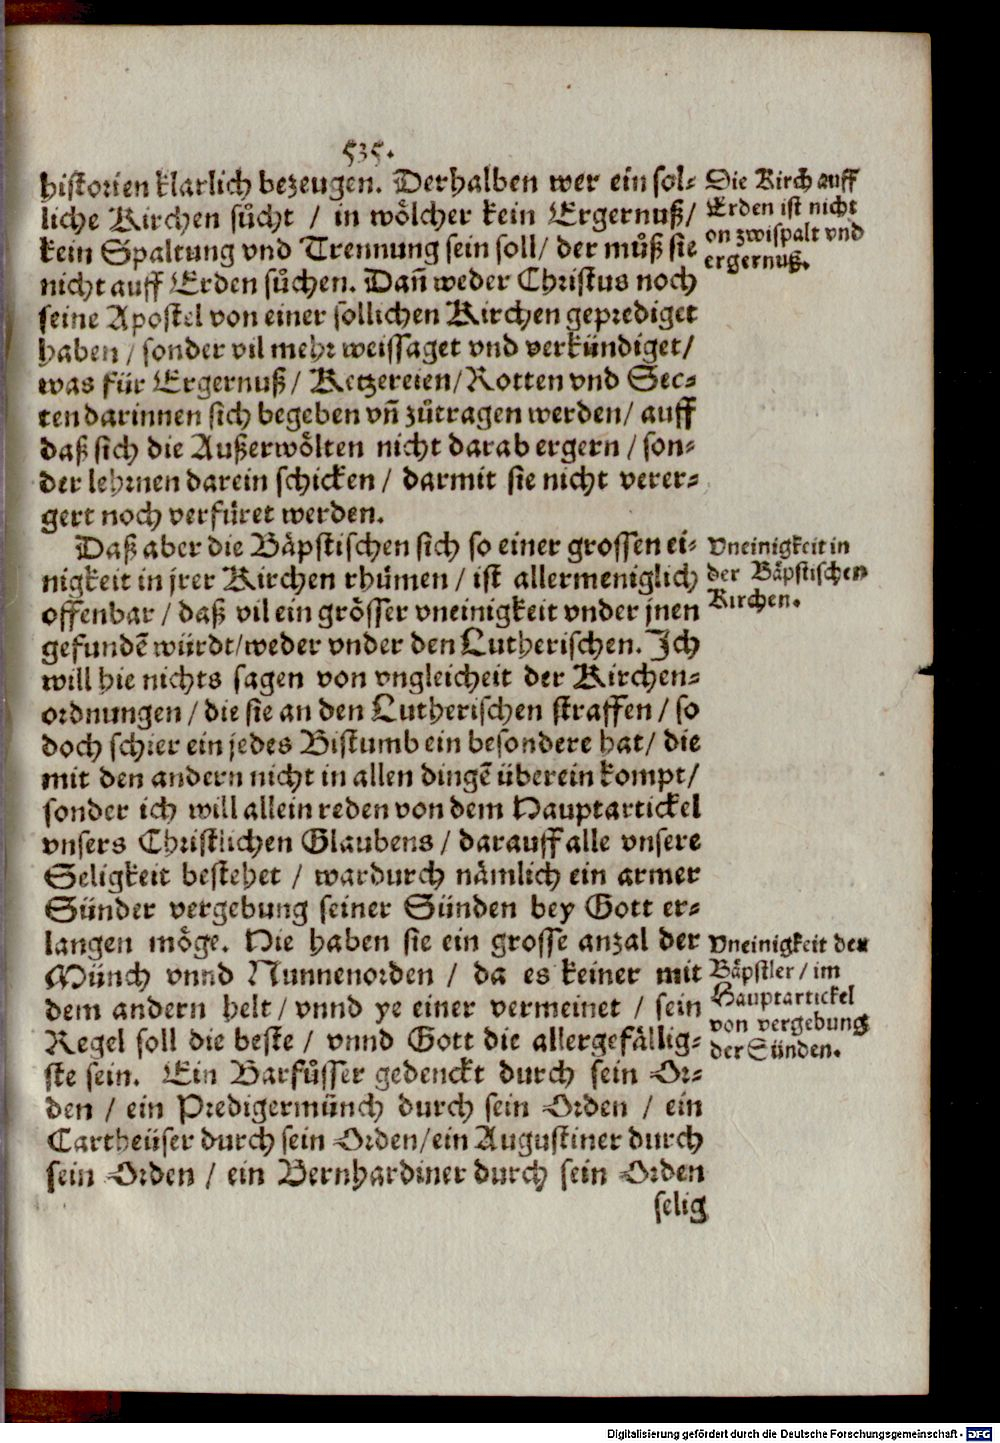 535.
historien klarlich bezeugen. Derhalben wer ein sol-
liche Kirchen sůcht / in wölcher kein Ergernuß/
kein Spaltung vnd Trennung sein soll/ der můß sie
nicht auff Erden sůchen. Dañ weder Christus noch
seine Apostel von einer sollichen Kirchen geprediget
haben / sonder vil mehr weissaget vnd verkündiget/
was für Ergernuß / Ketzereien/Rotten vnd Sec-
ten darinnen sich begeben vñ zůtragen werden/ auff
daß sich die Außerwölten nicht darab ergern / son-
der lehrnen darein schicken / darmit sie nicht verer-
gert noch verfüret werden.
Daß aber die Bäpstischen sich so einer grossen ei-
nigkeit in jrer Kirchen rhümen / ist allermeniglich
offenbar / daß vil ein grösser vneinigkeit vnder jnen
gefundẽ würdt/weder vnder den Lutherischen. Ich
will hie nichts sagen von vngleicheit der Kirchen-
ordnungen / die sie an den Lutherischen straffen / so
doch schier ein jedes Bistumb ein besondere hat/ die
mit den andern nicht in allen dingẽ überein kompt/
sonder ich will allein reden von dem Hauptartickel
vnsers Christlichen Glaubens / darauff alle vnsere
Seligkeit bestehet / wardurch nämlich ein armer
Sünder vergebung seiner Sünden bey Gott er-
langen möge. Hie haben sie ein grosse anzal der
Münch vnnd Nunnenorden / da es keiner mit
dem andern helt / vnnd ye einer vermeinet / sein
Regel soll die beste / vnnd Gott die allergefällig-
ste sein. Ein Barfůsser gedenckt durch sein Or-
den / ein Predigermünch durch sein Orden / ein
Cartheüser durch sein Orden/ein Augustiner durch
sein Orden / ein Bernhardiner durch sein Orden
selig
Die Kirch auff
Erden ist nicht
on zwispalt vnd
ergernuß.
Vneinigkeit in
der Bäpstischen
Kirchen.
Vneinigkeit der
Bäpstler / im
Hauptartickel
von vergebung
der Sünden.
Digitalisierung gefördert durch die Deutsche Forschungsgemeinschaft - DFG